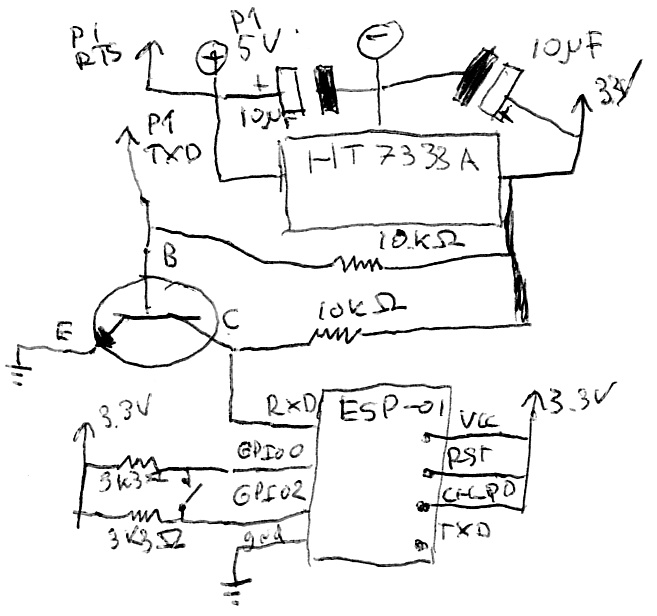 P1
RTS
P1
5V
10µF
10µF
3.3V
P1
TXD
HT7333A
10KΩ
B
10KΩ
E
C
RXD
ESP-01
VCC
3.3V
3.3V
GPIO0
RST
3K3Ω
GPIO2
CH_PD
3K3Ω
gnd
TXD